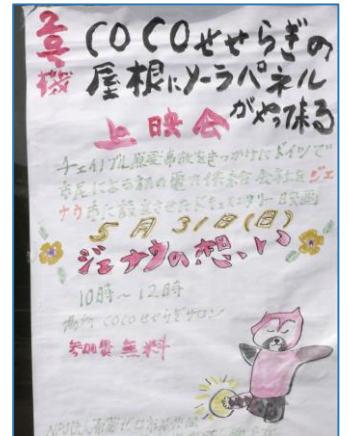 2号機
COCOせせらぎの
屋根にソーラパネル
がやって来る
上映会
チェルノブイル原発事故をきっかけにドイツで
市民による初の電力供給会社をシェー
ナウ市に設立させたドキュメンタリー映画
5月31日(日)
シェーナウの想い
10時～12時
場所 COCOせせらぎサロン
参加費無料
NPO法人